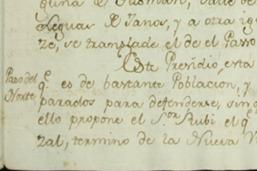 quina de Guzman, Valle de
Neguas de Janos, y a otra ig
ze, se translade el de el Passo
Este Presidio, esta
Passo del
Norte
q.e es de bastante Poblacion, y
parados para defenderse, sin q
ello propone el S.or Rubi el q.e
zal, termino de la Nueva V